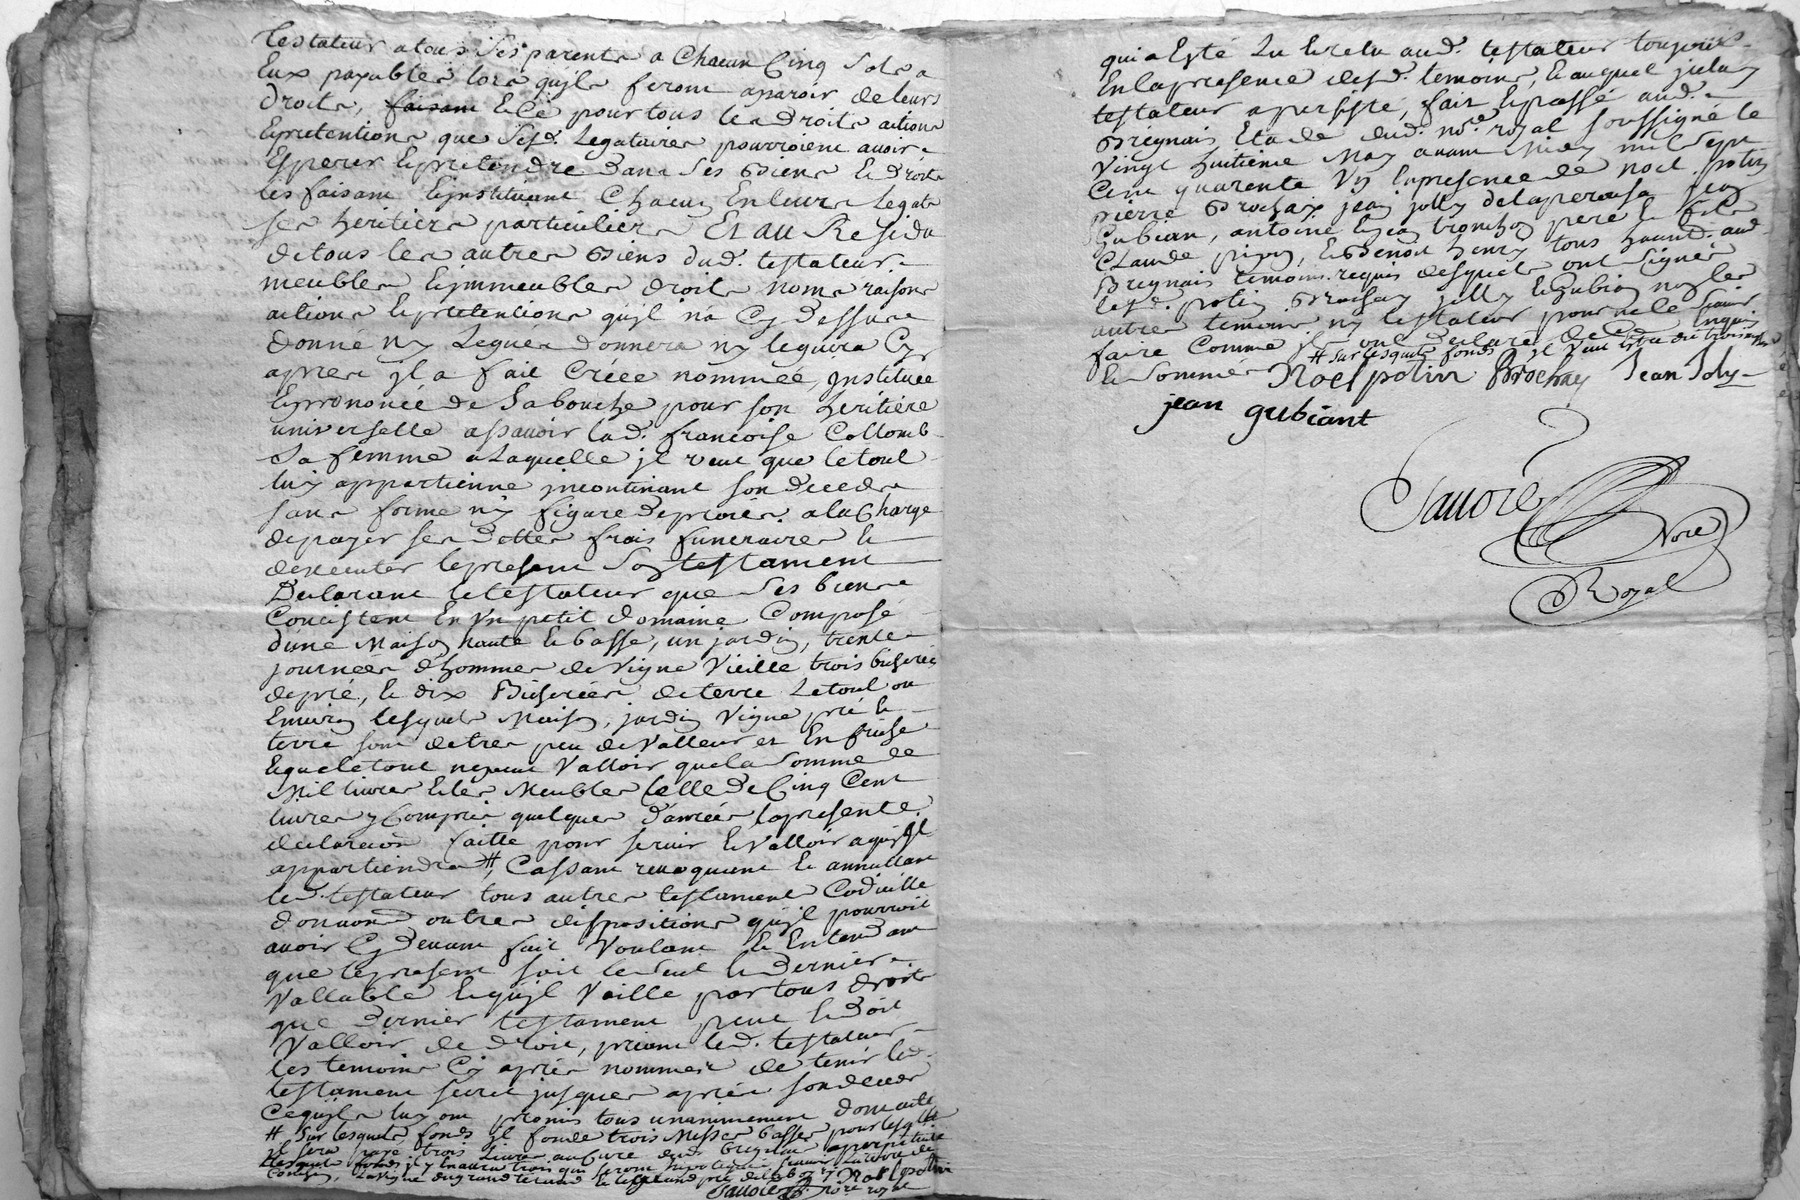 testateur a tous ses parents a Chacun Cinq sols a
Eux payables lors quils feront aparoir de leurs
droits, faisant Et ce pour tous les droits actions
Et pretentions que sesd. Legataires pourroient avoir
Esperer Et pretendre dans ses Biens Et droits
les faisant Et jnstituant Chacun En leurs Legats
ses heritiers particuliers Et au Residu
de tous les autres Biens dud. testateur
meubles Et jmmeubles droits noms raisons
actions Et pretentions quil na Cy dessus
donné ny Legués donnera ny leguera Cy
apres jl a fait Créée nommée, jnstituée
Et prononcée de sa bouche pour son heritiere
universelle assavoir lad. francoise Collomb
sa femme a Laquelle jl veut que le tout
luy appartienne jncontinant son deceds
sans forme ny figure de procès. a la Charge
de payer ses dettes frais funeraires Et
dexecuter le present son testament
Declarant le testateur que ses biens
Concistent En vn petit domaine Composé
dune Maison haute Et basse, un jardin, trente
journées dhommes de vigne vieille trois bicherées
de pré, Et dix Bicherées de terre Le tout ou
Environ lesquels Maison, jardin vigne pré Et
terre sont de tres peu de valleur et En friche
Et que le tout ne peut valloir que la somme de
Mil livres Et les Meubles Celle de Cinq Cent
livres y Compris quelques danrées la presente
declaration faitte pour servir Et valloir a qui jl
appartiendra #, Cassant revoquant Et annullant
led. testateur tous autres testament Codicille
donnation outres dispositions quil pourroit
avoir Cy devant fait voulant Et Entendant
que le present soit le seul Et dernier
vallable Et quil vaille par tous droits
que dernier testament peut Et doit
valloir de droit, priant led. testateur
les temoins Cy après nommés de tenir led.
testament secret jusques après son deceds
Ce quils luy ont promis tous unanimement dont acte
# sur lesquels fonds jl fonde trois Messes basses pour lesquelles
jl sera payé trois livres au Curé dud. brignais a perpetuité
Noel potin
Savoie No.re royal
qui a Esté Lu Et relu aud. testateur toujours
En la presence desd. temoins, Et auquel jceluy
testateur a persisté, fait Et passé aud.
Brignais Etude dud. no.re royal soussigné le
vingt huitieme May avant Midy mil sept
Cent quarente vn En presence de noel potin
pierre Brochay jean jolly delaperouse jean
Gubian, antoine Et jean tronchon pere Et fils
Claude pizay, Et Benoit henry tous habitd. aud.
Brignais temoins requis desquels ont signé
lesd. potin Brochay jolly Et Gubian non les
autres temoins ny testateur pour ne le scavoir
faire Comme jls ont declaré de ce Enquis
Et sommés # sur lesquels fonds jl
Noel potin Brochay Jean Joly
jean gubiant
Savoie
No.re
Royal